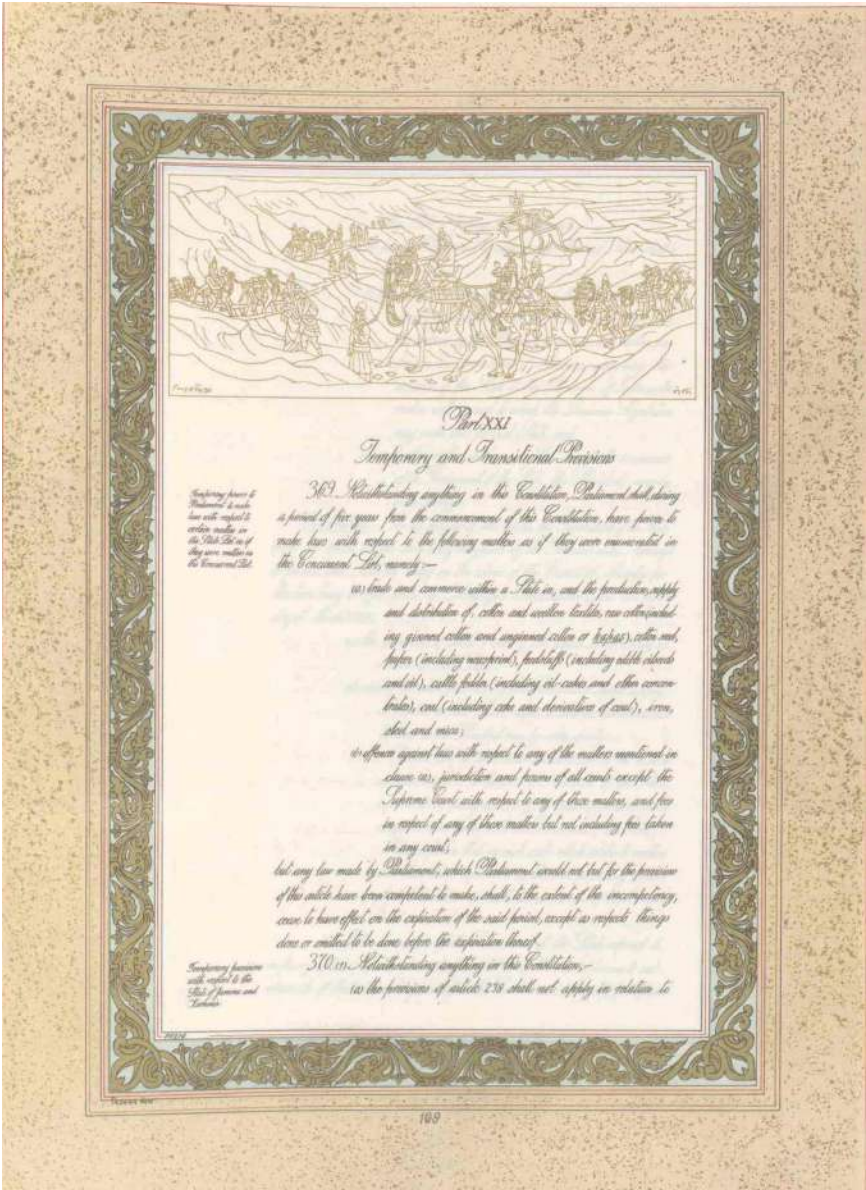 Part XXI
Temporary and Transitional Provisions
Temporary power to
Parliament to make
laws with respect to
certain matters in
the State List as if
they were matters in
the Concurrent List.
369. Notwithstanding anything in this Constitution, Parliament shall, during
a period of five years from the commencement of this Constitution, have power to
make laws with respect to the following matters as if they were enumerated in
the Concurrent List, namely:—
(a) trade and commerce within a State in, and the production, supply
and distribution of, cotton and woollen textiles, raw cotton (includ-
ing ginned cotton and unginned cotton or kapas), cotton seed,
paper (including newsprint), foodstuffs (including edible oilseeds
and oil), cattle fodder (including oil-cakes and other concen-
trates), coal (including coke and derivatives of coal), iron,
steel and mica;
(b) offences against laws with respect to any of the matters mentioned in
clause (a), jurisdiction and powers of all courts except the
Supreme Court with respect to any of those matters, and fees
in respect of any of those matters but not including fees taken
in any court;
but any law made by Parliament, which Parliament would not but for the provisions
of this article have been competent to make, shall, to the extent of the incompetency,
cease to have effect on the expiration of the said period, except as respects things
done or omitted to be done before the expiration thereof.
Temporary provisions
with respect to the
State of Jammu and
Kashmir.
370. (1) Notwithstanding anything in this Constitution,—
(a) the provisions of article 238 shall not apply in relation to
169